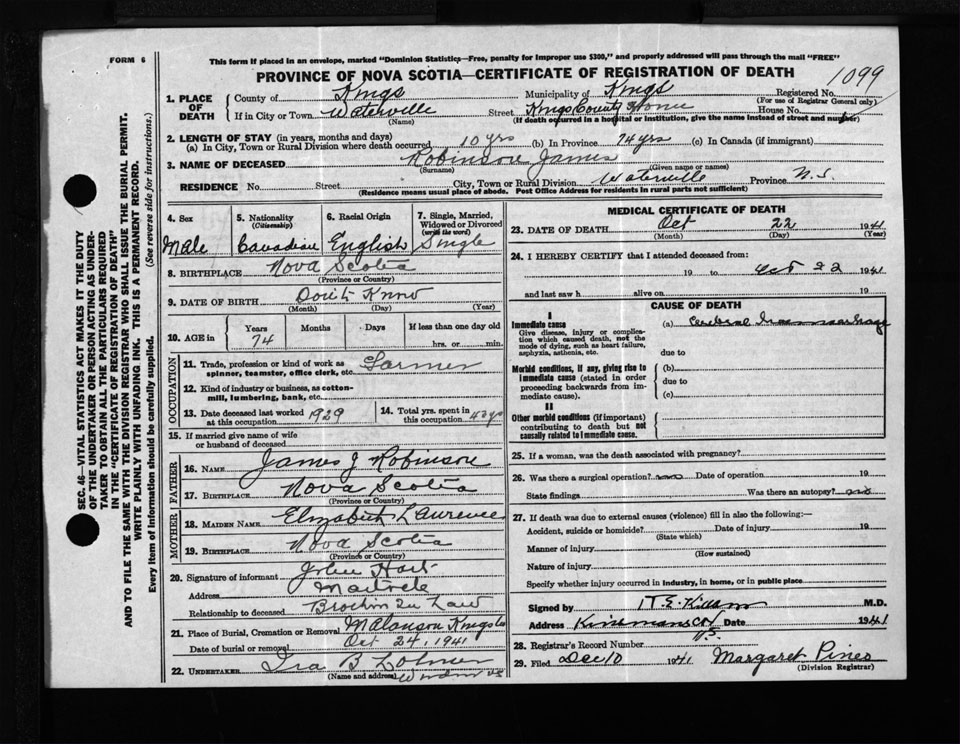 FORM 6
This form if placed in an envelope, marked "Dominion Statistics—Free, penalty for improper use $300," and properly addressed will pass through the mail "FREE"
PROVINCE OF NOVA SCOTIA—CERTIFICATE OF REGISTRATION OF DEATH
1099
1. PLACE OF DEATH
County of Kings Municipality of Kings Registered No.
(For use of Registrar General only)
If in City or Town Waterville Street Kings County Home House No.
(Name) (If death occurred in a hospital or institution, give the name instead of street and number)
2. LENGTH OF STAY (in years, months and days)
(a) In City, Town or Rural Division where death occurred 10 yrs (b) In Province 74 yrs (c) In Canada (if immigrant)
3. NAME OF DECEASED Robinson James
(Surname) (Given name or names)
RESIDENCE No. Street City, Town or Rural Division Waterville Province N.S.
(Residence means usual place of abode. Post Office Address for residents in rural parts not sufficient)
SEC. 46—VITAL STATISTICS ACT MAKES IT THE DUTY
OF THE UNDERTAKER OR PERSON ACTING AS UNDER-
TAKER TO OBTAIN ALL THE PARTICULARS REQUIRED
IN THE "CERTIFICATE OF REGISTRATION OF DEATH"
AND TO FILE THE SAME WITH THE DIVISION REGISTRAR WHO SHALL ISSUE THE BURIAL PERMIT.
WRITE PLAINLY WITH UNFADING INK. THIS IS A PERMANENT RECORD.
Every item of information should be carefully supplied. (See reverse side for instructions.)
4. Sex Male
5. Nationality (Citizenship) Canadian
6. Racial Origin English
7. Single, Married, Widowed or Divorced (write the word) Single
8. BIRTHPLACE Nova Scotia
(Province or Country)
9. DATE OF BIRTH Don't Know
(Month) (Day) (Year)
10. AGE in Years 74 Months Days If less than one day old
hrs. or min.
OCCUPATION
11. Trade, profession or kind of work as spinner, teamster, office clerk, etc. Farmer
12. Kind of industry or business, as cotton-mill, lumbering, bank, etc.
13. Date deceased last worked at this occupation 1929
14. Total yrs. spent in this occupation
15. If married give name of wife or husband of deceased
FATHER
16. NAME James J Robinson
17. BIRTHPLACE Nova Scotia
(Province or Country)
MOTHER
18. MAIDEN NAME Elizabeth Laurence
19. BIRTHPLACE Nova Scotia
(Province or Country)
20. Signature of informant John Hart
Address
Relationship to deceased Brother In Law
21. Place of Burial, Cremation or Removal Melanson Kings Co
Date of burial or removal Oct 24, 1941
22. UNDERTAKER Ira B
(Name and address)
MEDICAL CERTIFICATE OF DEATH
23. DATE OF DEATH Oct 22 1941
(Month) (Day) (Year)
24. I HEREBY CERTIFY that I attended deceased from:
19 to Oct 22 1941
and last saw h alive on 19
CAUSE OF DEATH
I
Immediate cause
Give disease, injury or complication which caused death, not the mode of dying, such as heart failure, asphyxia, asthenia, etc.
(a) Cerebral
due to
Morbid conditions, if any, giving rise to immediate cause (stated in order proceeding backwards from immediate cause).
(b)
due to
(c)
II
Other morbid conditions (if important) contributing to death but not causally related to immediate cause.
25. If a woman, was the death associated with pregnancy?
26. Was there a surgical operation? no Date of operation 19
State findings Was there an autopsy? no
27. If death was due to external causes (violence) fill in also the following:—
Accident, suicide or homicide? Date of injury 19
(State which)
Manner of injury
(How sustained)
Nature of injury
Specify whether injury occurred in industry, in home, or in public place
Signed by M.D.
Address Date 1941
28. Registrar's Record Number
29. Filed Dec 10 1941 Margaret Pineo
(Division Registrar)